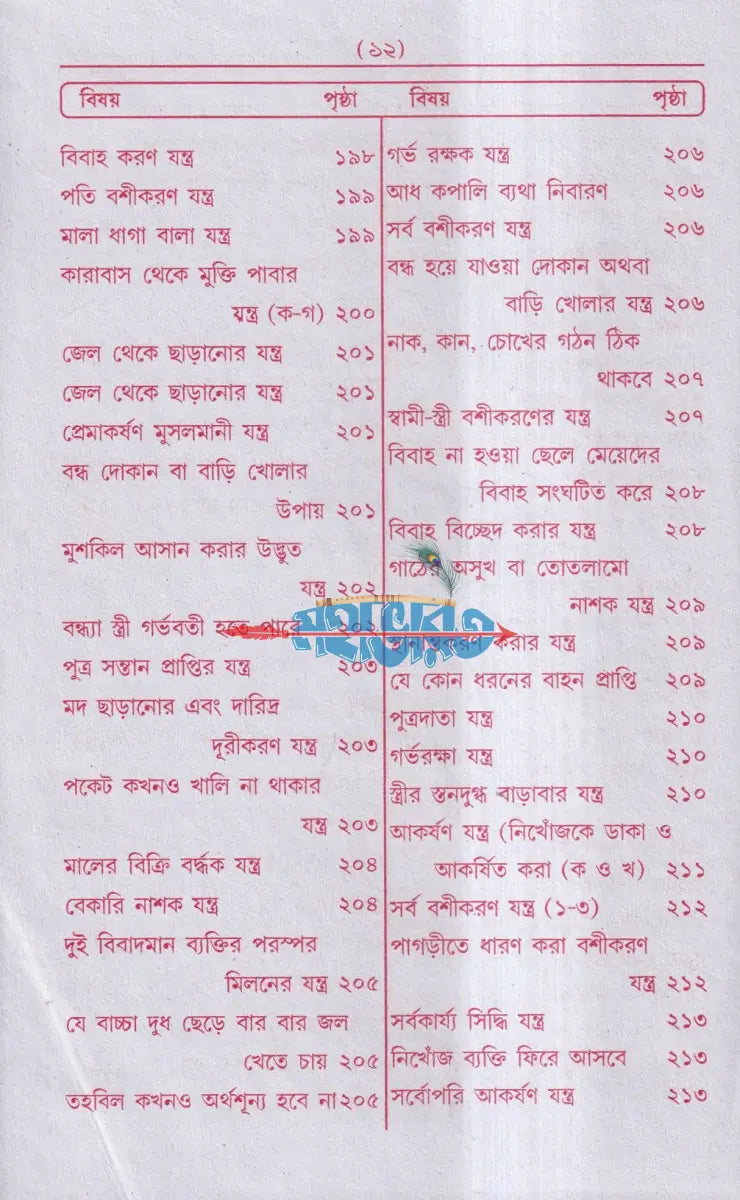 (১২)
বিষয় পৃষ্ঠা বিষয় পৃষ্ঠা
বিবাহ করণ যন্ত্র ১৯৮
পতি বশীকরণ যন্ত্র ১৯৯
মালা ধাগা বালা যন্ত্র ১৯৯
কারাবাস থেকে মুক্তি পাবার
যন্ত্র (ক-গ) ২০০
জেল থেকে ছাড়ানোর যন্ত্র ২০১
জেল থেকে ছাড়ানোর যন্ত্র ২০১
প্রেমাকর্ষণ মুসলমানী যন্ত্র ২০১
বন্ধ দোকান বা বাড়ি খোলার
উপায় ২০১
মুশকিল আসান করার উদ্ভুত
যন্ত্র ২০২
বন্ধ্যা স্ত্রী গর্ভবতী হতে পারে ২০২
পুত্র সন্তান প্রাপ্তির যন্ত্র ২০৩
মদ ছাড়ানোর এবং দারিদ্র
দূরীকরণ যন্ত্র ২০৩
পকেট কখনও খালি না থাকার
যন্ত্র ২০৩
মালের বিক্রি বর্দ্ধক যন্ত্র ২০৪
বেকারি নাশক যন্ত্র ২০৪
দুই বিবাদমান ব্যক্তির পরস্পর
মিলনের যন্ত্র ২০৫
যে বাচ্চা দুধ ছেড়ে বার বার জল
খেতে চায় ২০৫
তহবিল কখনও অর্থশূন্য হবে না ২০৫
গর্ভ রক্ষক যন্ত্র ২০৬
আধ কপালি ব্যথা নিবারণ ২০৬
সর্ব বশীকরণ যন্ত্র ২০৬
বন্ধ হয়ে যাওয়া দোকান অথবা
বাড়ি খোলার যন্ত্র ২০৬
নাক, কান, চোখের গঠন ঠিক
থাকবে ২০৭
স্বামী-স্ত্রী বশীকরণের যন্ত্র ২০৭
বিবাহ না হওয়া ছেলে মেয়েদের
বিবাহ সংঘটিত করে ২০৮
বিবাহ বিচ্ছেদ করার যন্ত্র ২০৮
গাঠের অসুখ বা তোতলামো
নাশক যন্ত্র ২০৯
করার যন্ত্র ২০৯
যে কোন ধরনের বাহন প্রাপ্তি ২০৯
পুত্রদাতা যন্ত্র ২১০
গর্ভরক্ষা যন্ত্র ২১০
স্ত্রীর স্তনদুগ্ধ বাড়াবার যন্ত্র ২১০
আকর্ষণ যন্ত্র (নিখোঁজকে ডাকা ও
আকর্ষিত করা (ক ও খ) ২১১
সর্ব বশীকরণ যন্ত্র (১-৩) ২১২
পাগড়ীতে ধারণ করা বশীকরণ
যন্ত্র ২১২
সর্বকার্য্য সিদ্ধি যন্ত্র ২১৩
নিখোঁজ ব্যক্তি ফিরে আসবে ২১৩
সর্বোপরি আকর্ষণ যন্ত্র ২১৩
মহাভারত